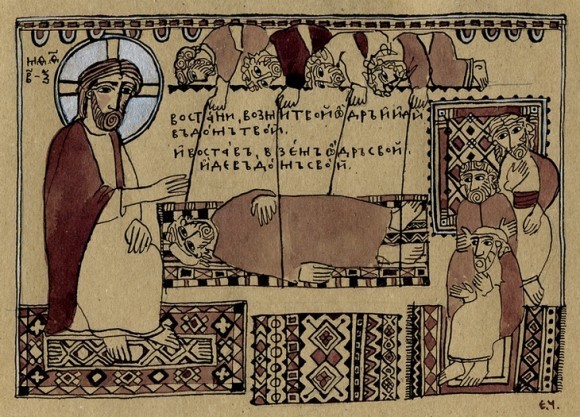 ВОСТАНИ, ВОЗМИ ТВОЙ ѺДРЪ И ИДИ
ВЪ ДОМЪ ТВОЙ.
И ВОСТАВЪ, ВЗЕМЪ ѺДРЪ СВОЙ
ИДЕ ВЪ ДОМЪ СВОЙ.
Е.Ч.